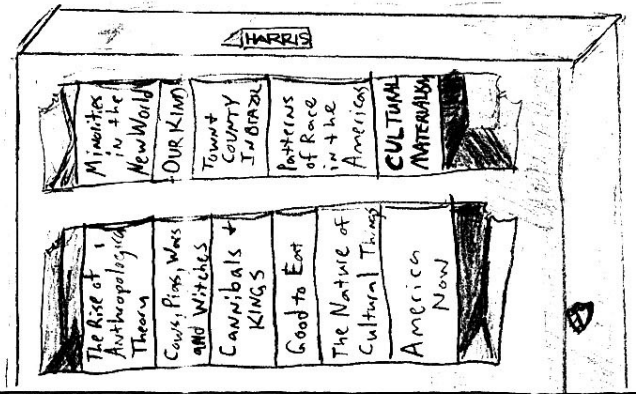 HARRIS
Minolities
in the
New World
OUR KIND
TOWN +
COUNTY
IN BRAZIL
Patterns
of Race
in the
Americas
CULTURAL
MATERIALISM
The Rise of
Anthropological
Theory
Cows, Pigs, Wars
and Witches
Cannibals +
KINGS
Good to Eat
The Nature of
Cultural Things
America
Now